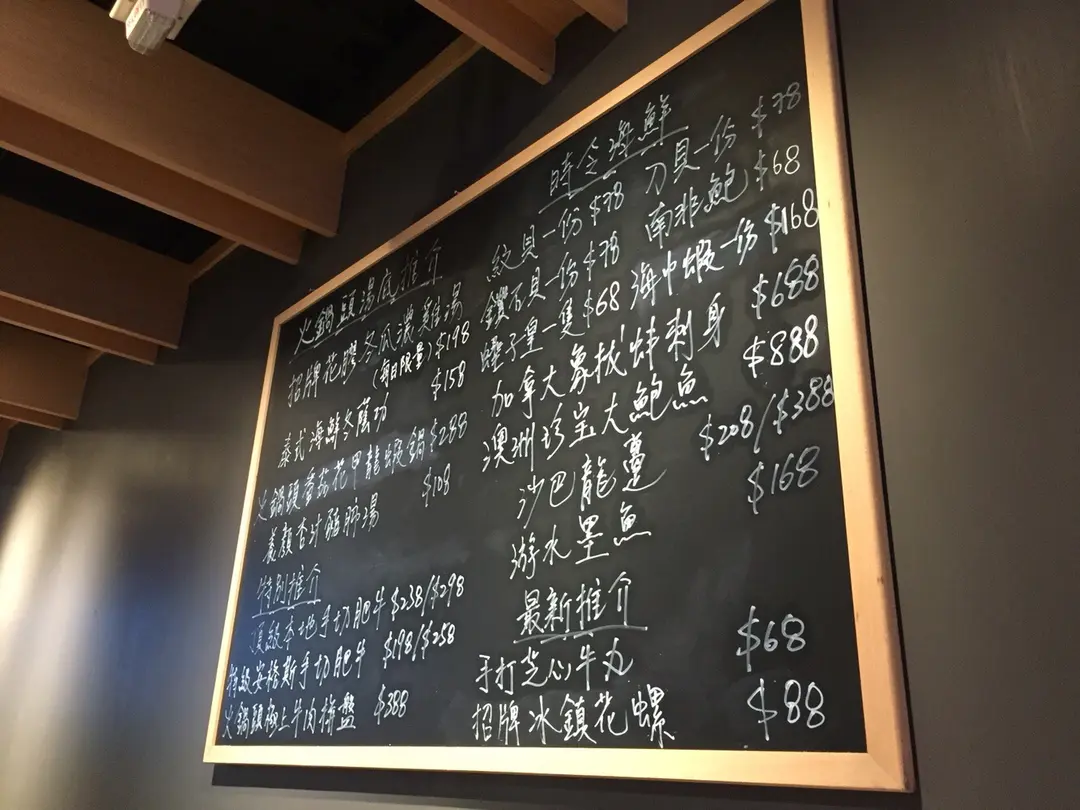 火鍋頭湯底推介
招牌花膠冬瓜濃雞湯
(每日限量) $198
泰式海鮮冬蔭功 $158
火鍋頭蕃茄花甲龍蝦鍋 $288
養顏杏汁豬肺湯 $108
特別推介
頂級本地手切肥牛 $238/$298
特級安格斯手切肥牛 $198/$258
火鍋頭極上牛肉拼盤 $388
時令海鮮
紋貝一份 $78 刀貝一份 $78
鑽石貝一份 $78 南非鮑 $68
蟶子皇一隻 $68 海中蝦一份 $168
加拿大象拔蚌刺身 $688
澳洲珍宝大鮑魚 $888
沙巴龍躉 $208/$388
游水墨魚 $168
最新推介
手打芝心牛丸 $68
招牌冰鎮花螺 $88